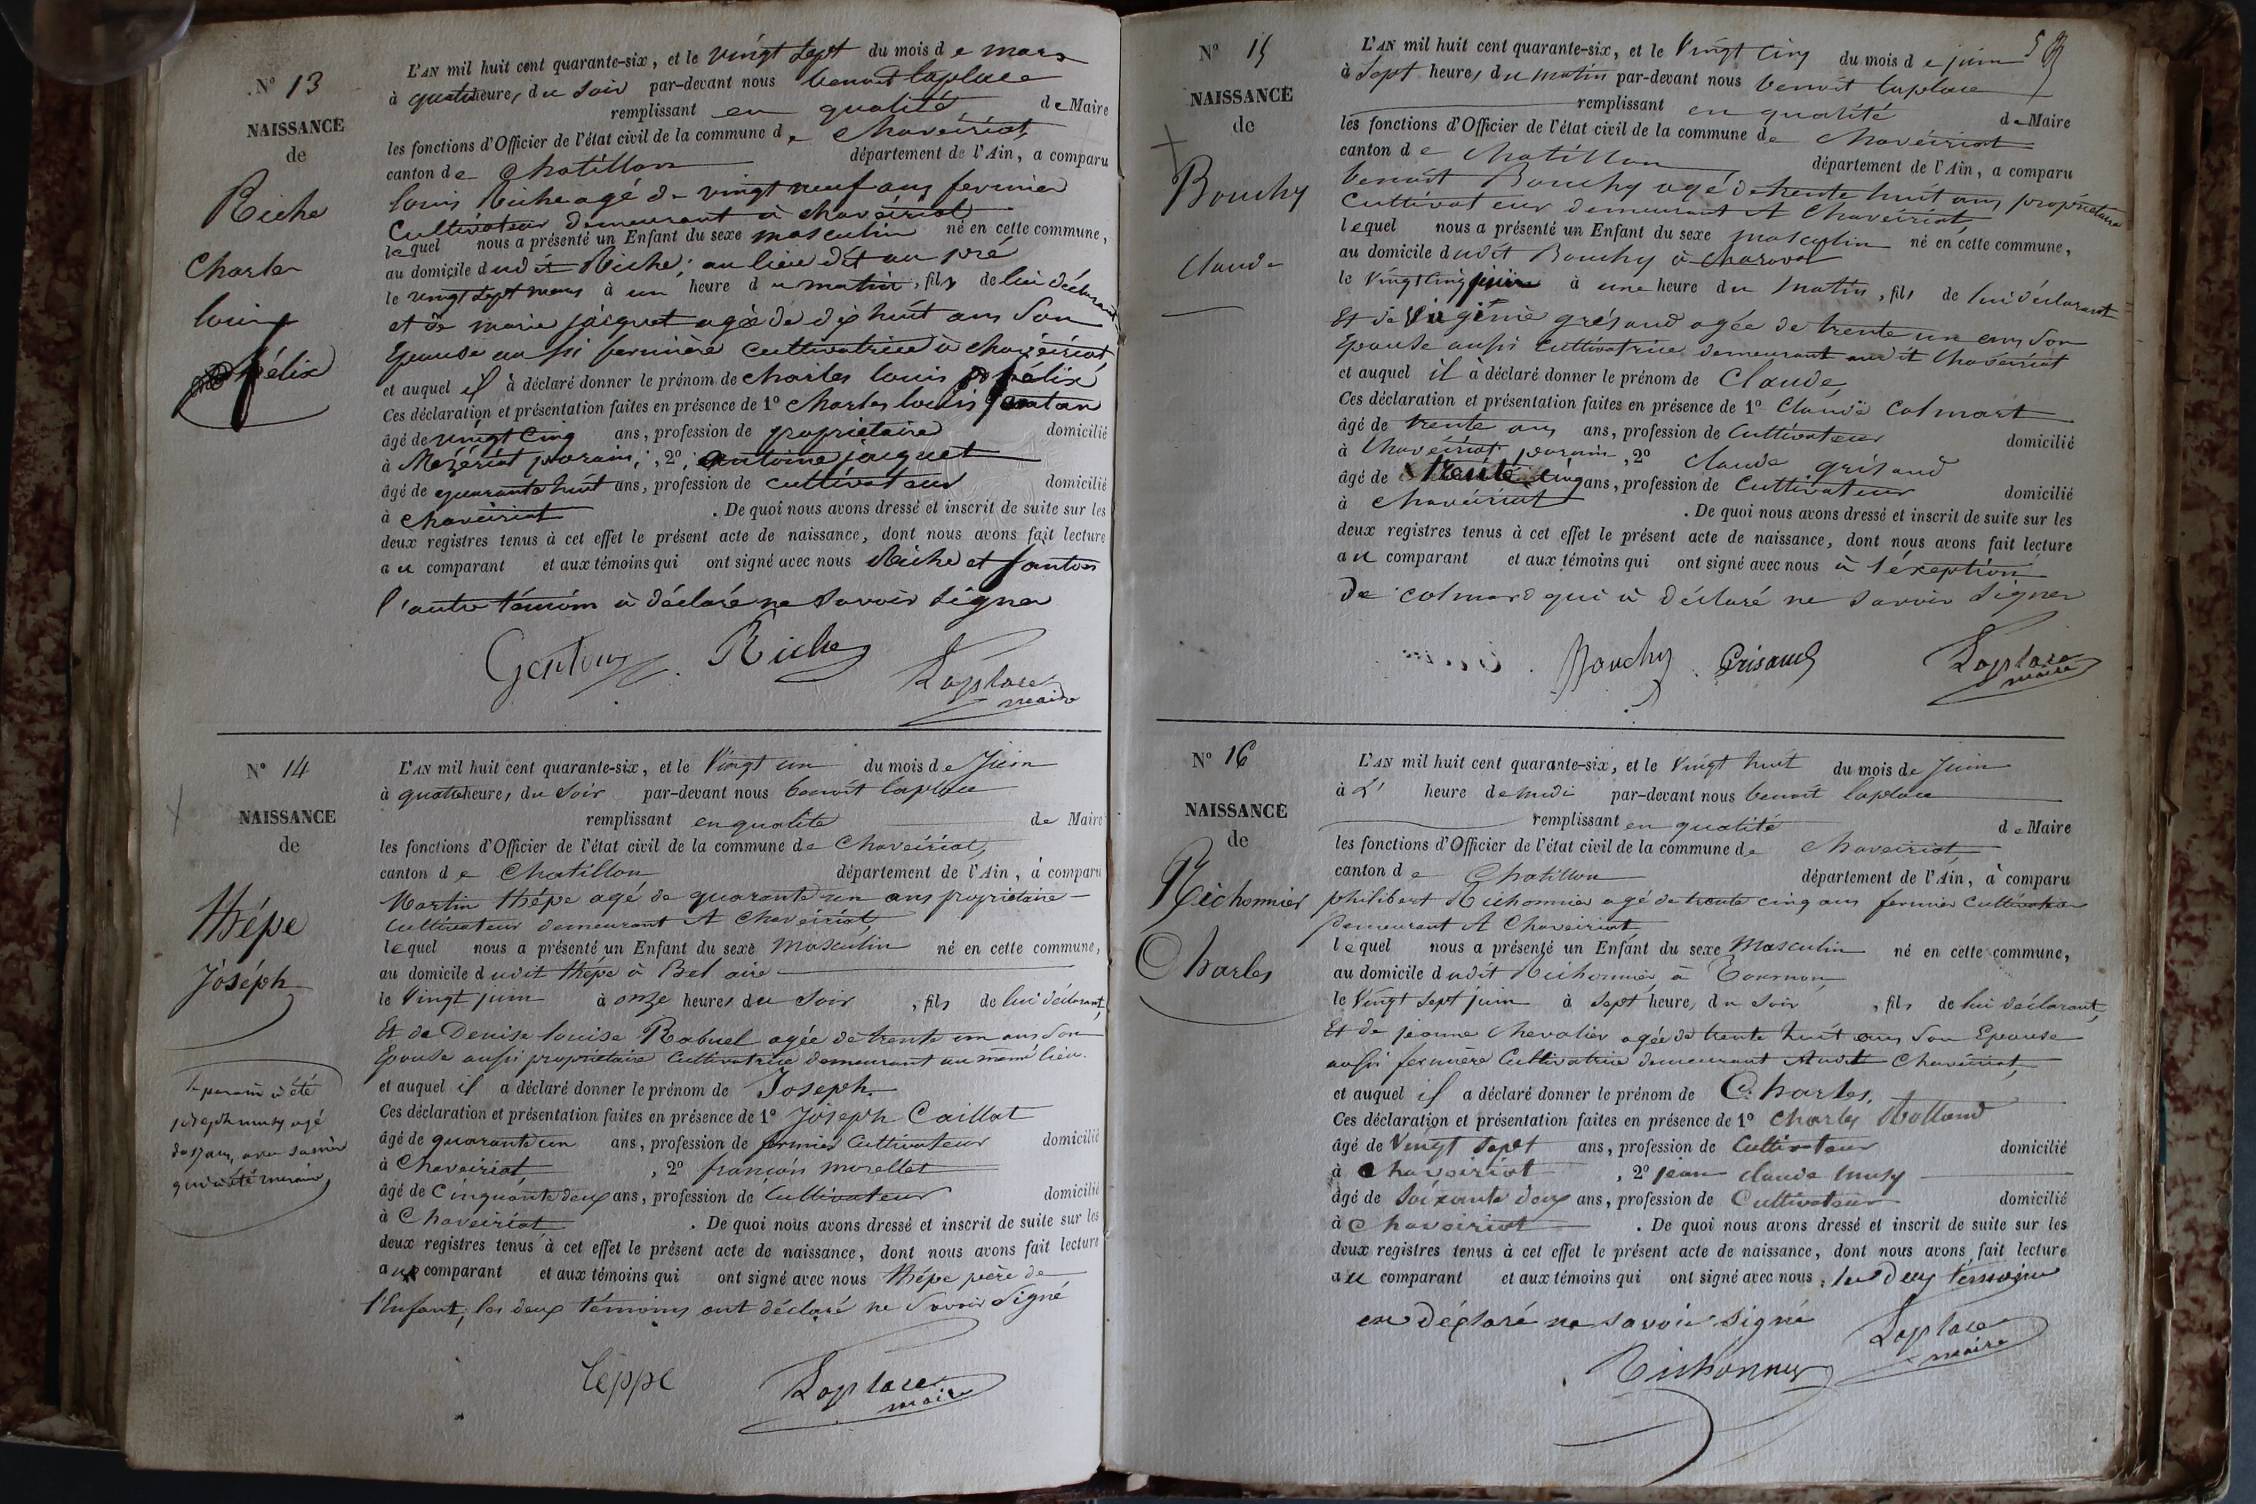 N° 13
NAISSANCE
de
Riche
Charles
louis
félix
L'AN mil huit cent quarante-six, et le vingt sept du mois de mars
à quatre heures du soir par-devant nous benoit laplace
remplissant en qualité de Maire
les fonctions d'Officier de l'état civil de la commune de Chaveiriat
canton de Chatillon département de l'Ain, a comparu
louis Riche agé de vingt neuf ans fermier
Cultivateur demeurant à chaveiriat
lequel nous a présenté un Enfant du sexe masculin né en cette commune,
au domicile dudit Riche; au lieu dit au pré
le vingt sept mars à un heure du matin, fils de lui déclarant
et de marie jaiquet agée de dix huit ans Son
Epouse aussi fermière cultivatrice à chaveiriat
et auquel il à déclaré donner le prénom de charles louis félix
Ces déclaration et présentation faites en présence de 1° charles louis
âgé de vingt cinq ans, profession de propriétaire domicilié
à Mézériat parain, 2° antoine jaiquet
âgé de quarante huit ans, profession de cultivateur domicilié
à chaveiriat. De quoi nous avons dressé et inscrit de suite sur les
deux registres tenus à cet effet le présent acte de naissance, dont nous avons fait lecture
au comparant et aux témoins qui ont signé avec nous Riche et
l'autre témoin à déclaré ne savoir signer
Riche Laplace
maire
N° 14
NAISSANCE
de
thépe
Joséph
le parain à été
joseph musy agé
de ans, avec
qui à été
L'AN mil huit cent quarante-six, et le Vingt un du mois de Juin
à quatre heures du Soir par-devant nous benoit laplace
remplissant en qualité de Maire
les fonctions d'Officier de l'état civil de la commune de Chaveiriat,
canton de Chatillon département de l'Ain, à comparu
Martin thépe agé de quarante un ans propriétaire
Cultivateur demeurant A Chaveiriat,
lequel nous a présenté un Enfant du sexe Masculin né en cette commune,
au domicile dudit thépe à Bel aire
le Vingt juin à onze heures du Soir, fils de lui déclarant,
Et de Denise louise Rabuel agée de trente un ans Son
Epouse aussi propriétaire Cultivatrice demeurant au même lieu.
et auquel il a déclaré donner le prénom de Joseph.
Ces déclaration et présentation faites en présence de 1° Joseph Caillat
âgé de quarante un ans, profession de fermier Cultivateur domicilié
à Chaveiriat, 2° françois morellet
âgé de Cinquante deux ans, profession de Cultivateur domicilié
à Chaveiriat. De quoi nous avons dressé et inscrit de suite sur les
deux registres tenus à cet effet le présent acte de naissance, dont nous avons fait lecture
au comparant et aux témoins qui ont signé avec nous thépe père de
l'Enfant; les deux témoins ont déclaré ne Savoir Signé
téppe Laplace
maire
N° 15
NAISSANCE
de
Bouchy
Claude
L'AN mil huit cent quarante-six, et le Vingt Cinq du mois de juin
à Sept heures du matin par-devant nous benoit laplace
remplissant en qualité de Maire
les fonctions d'Officier de l'état civil de la commune de Chaveiriat
canton de Chatillon département de l'Ain, a comparu
benoit Bouchy agé de trente huit ans propriétaire
Cultivateur demeurant A Chaveiriat,
lequel nous a présenté un Enfant du sexe masculin né en cette commune,
au domicile dudit Bouchy à
le Vingt Cinq juin à une heure du Matin, fils de lui déclarant
Et de Virginie grésaud agée de trente un ans Son
Epouse aussi Cultivatrice demeurant audit Chaveiriat
et auquel il a déclaré donner le prénom de Claude,
Ces déclaration et présentation faites en présence de 1° Claude Colmart
âgé de trente ans ans, profession de Cultivateur domicilié
à Chaveiriat parain, 2° claude grisaud
âgé de trente cinq ans, profession de Cultivateur domicilié
à Chaveiriat. De quoi nous avons dressé et inscrit de suite sur les
deux registres tenus à cet effet le présent acte de naissance, dont nous avons fait lecture
au comparant et aux témoins qui ont signé avec nous à l'éxeption
De Colmard qui à déclaré ne savoir Signer
Bouchy Grisaud Laplace
maire
N° 16
NAISSANCE
de
Richonnier
Charles
L'AN mil huit cent quarante-six, et le Vingt huit du mois de Juin
à L' heure de midi par-devant nous benoit laplace
remplissant en qualité de Maire
les fonctions d'Officier de l'état civil de la commune de Chaveiriat,
canton de Chatillon département de l'Ain, à comparu
philibert Richonnier agé de trente cinq ans fermier Cultivateur
Demeurant A Chaveiriat
lequel nous a présenté un Enfant du sexe Masculin né en cette commune,
au domicile dudit Richonnier à Tournon,
le Vingt Sept juin à Sept heures du Soir, fils de lui déclarant,
Et de jeanne Chevalier agée de trente huit ans Son Epouse
aussi fermière Cultivatrice demeurant Audit Chaveiriat,
et auquel il a déclaré donner le prénom de Charles,
Ces déclaration et présentation faites en présence de 1° Charles Rolland
âgé de Vingt Sept ans, profession de Cultivateur domicilié
à Chaveiriat, 2° jean claude musy
âgé de Soixante deux ans, profession de Cultivateur domicilié
à Chaveiriat. De quoi nous avons dressé et inscrit de suite sur les
deux registres tenus à cet effet le présent acte de naissance, dont nous avons fait lecture
au comparant et aux témoins qui ont signé avec nous, les Deux témoins
on déclaré ne savoir signé
Richonnier Laplace
maire